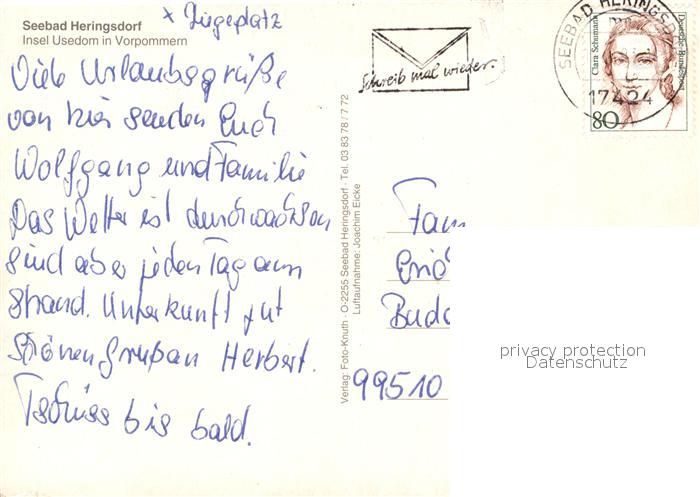 x Liegeplatz
Seebad Heringsdorf
Insel Usedom in Vorpommern
Viele Urlaubsgrüße
von hier senden Euch
Wolfgang und Familie
Das Wetter ist durchwachsen
sind aber jeden Tag am
Strand. Unterkunft gut
schönen Gruß an Herbert.
Tschüss bis bald.
Verlag: Foto-Knuth · O-2255 Seebad Heringsdorf · Tel. 03 83 78 / 7 72
Luftaufnahme: Joachim Eicke
Schreib mal wieder.
SEEBAD HERINGSD
17424
Clara Schumann
Deutsche Bundespost
80
Fam
99510
privacy protection
Datenschutz